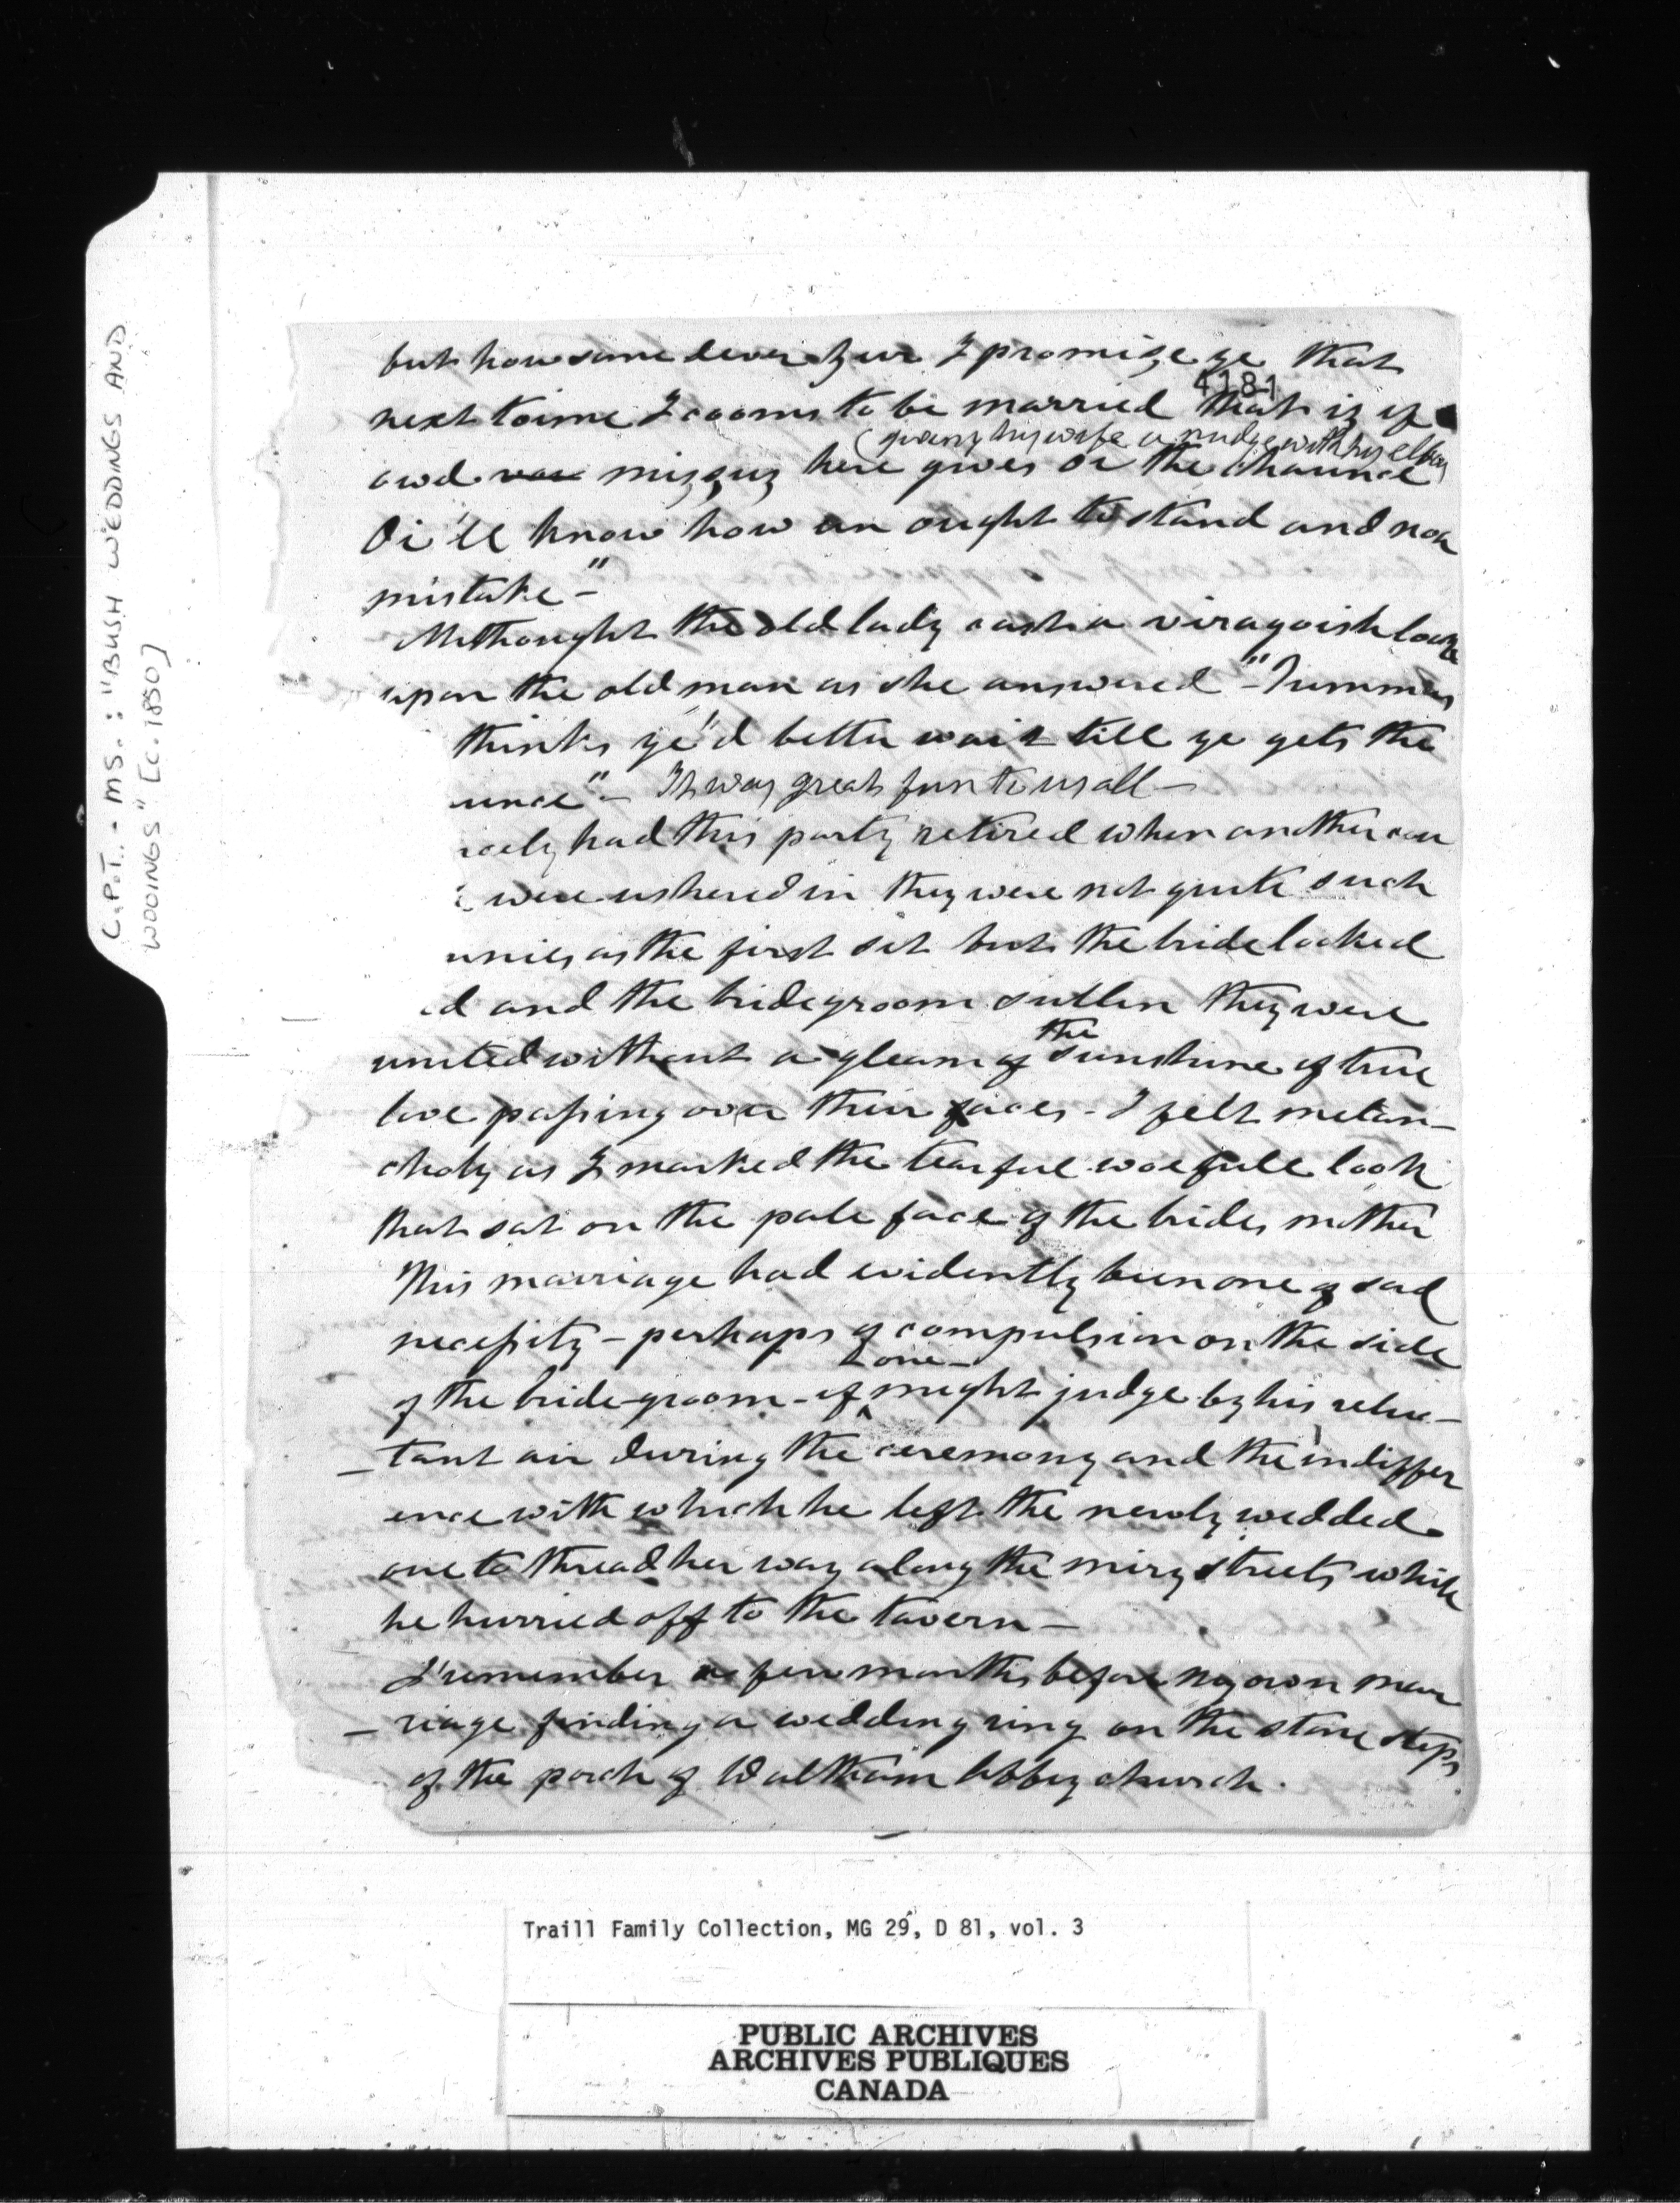 C.P.T. - MS.: "BUSH WEDDINGS AND
WOOINGS" [c. 1850]
but howsomedever zur I promize ye that
4181
next toime I cooms to be married that iz if
(giving his wife a nudge with his elbow
owd mizzuz here gives oi the chaunce)
Oi'll know how un ought to stand and noa
mistake-"
Methought the old lady cast a viragoish look
upon the old man as she answered - "Tummas
thinks ye'd better wait till ye gets the
unce" - It was great fun to us all -
rcely had this party retired when another cou
e were ushered in they were not quite such
unies as the first set but the bride looked
d and the bridegroom sullen they were
the
united without a gleam of sunshine of true
love passing over their faces - I felt melan-
choly as I marked the tearful woefull look
that sat on the pale face of the brides mother
This marriage had evidently been one of sad
necessity - perhaps of compulsion on the side
one
of the bride-groom - if might judge by his reluc-
-tant air during the ceremony and the indiffer
ence with which he left the newly wedded
one to thread her way along the miry streets while
he hurried off to the tavern -
I remember a few months before my own mar
-riage finding a wedding ring on the stone steps
of the porch of Waltham Abbey church.
Traill Family Collection, MG 29, D 81, vol. 3
PUBLIC ARCHIVES
ARCHIVES PUBLIQUES
CANADA